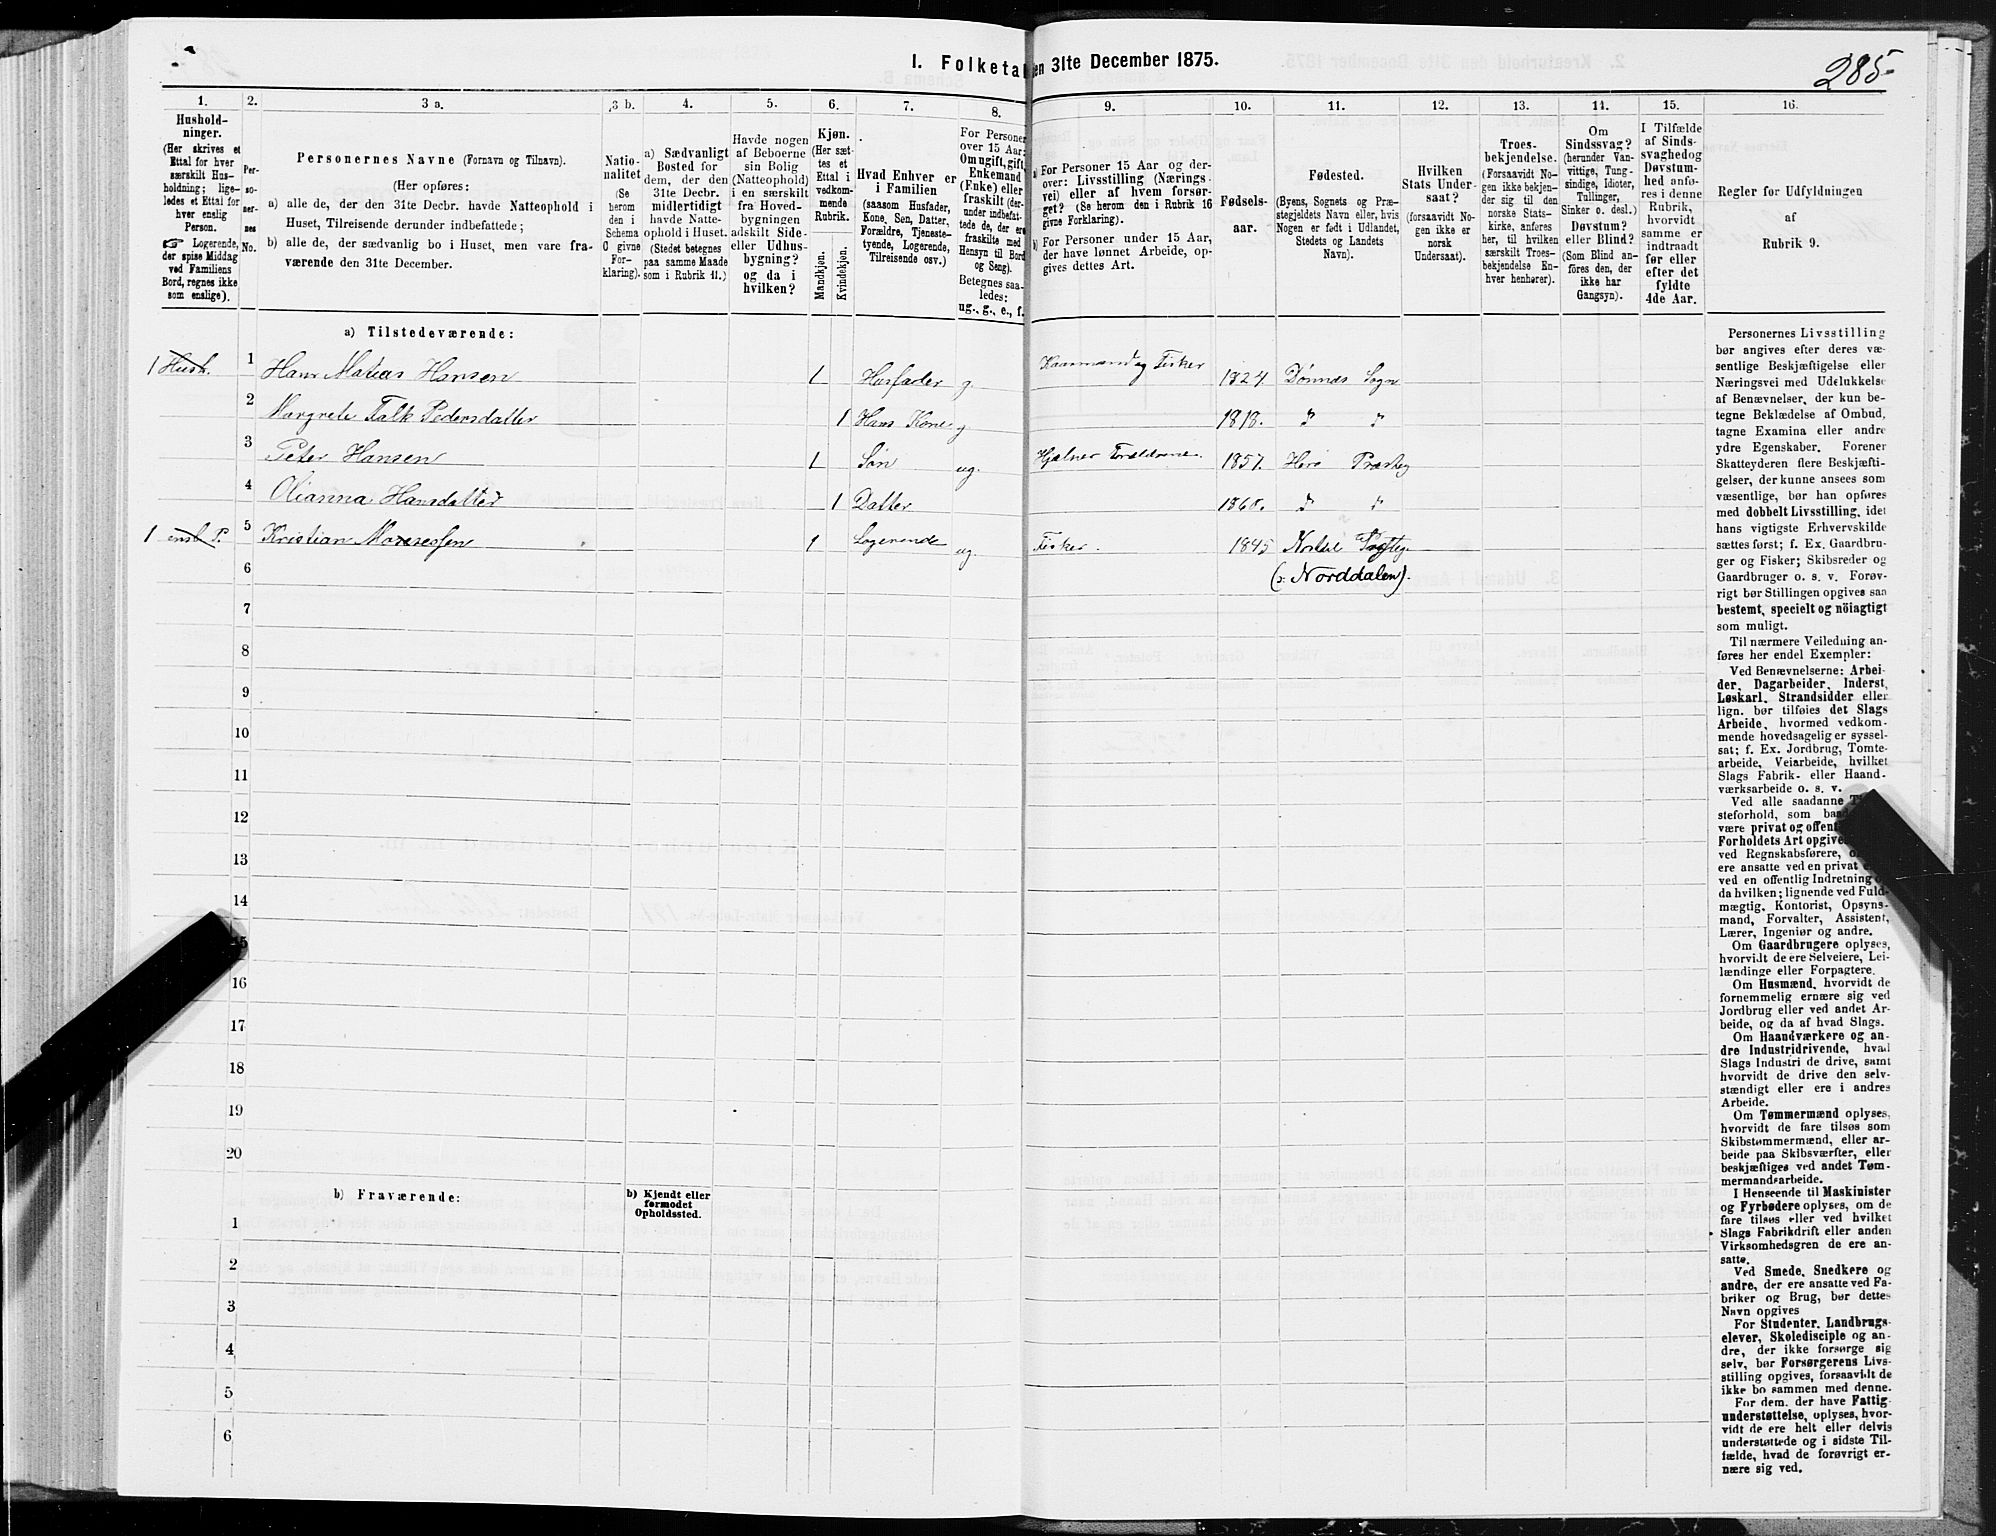 1. Folketal den 31te December 1875.
285
1. 2. 3 a. 3 b. 4. 5. 6. 7. 8. 9. 10. 11. 12. 13. 14. 15. 16.
Hushold-
ninger.
(Her skrives et
Ettal for hver
særskilt Hus-
holdning; lige-
ledes et Ettal for
hver enslig
Person.
☞ Logerende,
der spise Middag
ved Familiens
Bord, regnes ikke
som enslige).
Per-
so-
ner-
nes
No.
Personernes Navne (Fornavn og Tilnavn).
(Her opføres:
a) alle de, der den 31te Decbr. havde Natteophold i
Huset, Tilreisende derunder indbefattede;
b) alle de, der sædvanlig bo i Huset, men vare fra-
værende den 31te December.
Natio-
nalitet
(Se
herom
den i
Schema
C givne
For-
klaring).
a) Sædvanligt
Bosted for
dem, der den
31te Decbr.
midlertidigt
havde Natte-
ophold i Huset.
(Stedet betegnes
paa samme Maade
som i Rubrik 11.)
Havde nogen
af Beboerne
sin Bolig
(Natteophold)
i en særskilt
fra Hoved-
bygningen
adskilt Side-
eller Udhus-
bygning?
og da i
hvilken?
Kjøn.
(Her sæt-
tes et
Ettal i
vedkom-
mende
Rubrik.
Mandkjøn.
Kvindekjøn.
Hvad Enhver er
i Familien
(saasom Husfader,
Kone, Søn, Datter,
Forældre, Tjeneste-
tyende, Logerende,
Tilreisende osv.)
For Personer
over 15 Aar:
Om ugift, gift,
Enkemand
(Enke) eller
fraskilt (der-
under indbefat-
tede de, der ere
fraskilte med
Hensyn til Bord
og Seng).
Betegnes saa-
ledes:
ug., g., e., f.
a) For Personer 15 Aar og der-
over: Livsstilling (Nærings-
vei) eller af hvem forsør-
get? (Se herom den i Rubrik 16
givne Forklaring).
b) For Personer under 15 Aar,
der have lønnet Arbeide, op-
gives dettes Art.
Fødsels-
aar.
Fødested.
(Byens, Sognets og Præ-
stegjeldets Navn eller, hvis
Nogen er født i Udlandet,
Stedets og Landets
Navn).
Hvilken
Stats Under-
saat?
(forsaavidt No-
gen ikke er
norsk
Undersaat).
Troes-
bekjendelse.
(Forsaavidt No-
gen ikke bekjen-
der sig til den
norske Stats-
kirke, anføres
her, til hvilken
særskilt Troes-
bekjendelse En-
hver henhører).
Om
Sindssvag?
(herunder Van-
vittige, Tung-
sindige, Idioter,
Tullinger,
Sinker o. desl.)
Døvstum?
eller Blind?
(Som Blind an-
føres den, der
ikke har
Gangsyn).
I Tilfælde
af Sinds-
svaghed og
Døvstum-
hed anfø-
res i denne
Rubrik,
hvorvidt
samme er
indtraadt
før eller
efter det
fyldte
4de Aar.
Regler for Udfyldningen
af
Rubrik 9.
a) Tilstedeværende:
1 Hush. 1 Hans Matias Hansen 1 Husfader g Kaarmand og Fisker 1824 Dønnes Sogn
2 Margrete Falk Pedersdatter 1 Hans Kone g 1818. " "
3 Peter Hansen 1 Søn ug. Hjælper Forældrene. 1857. Herø Præsteg
4 Olianna Hansdatter 1 Datter 1860. " "
1 ensl P. 5 Kristian 1 Logerende ug. Fisker. 1845
6 (ɔ: Norddalen).
7
8
9
10
11
12
13
14
5
16
17
18
19
20
b) Fraværende:
b) Kjendt eller
formodet
Opholdssted.
1
2
3
4
5
6
Personernes Livsstilling
bør angives efter deres væ-
sentlige Beskjæftigelse eller
Næringsvei med Udelukkelse
af Benævnelser, der kun be-
tegne Beklædelse af Ombud,
tagne Examina eller andre
ydre Egenskaber. Forener
Skatteyderen flere Beskjæfti-
gelser, der kunne ansees som
væsentlige, bør han opføres
med dobbelt Livsstilling, idet
hans vigtigste Erhvervskilde
sættes først; f. Ex. Gaardbru-
ger og Fisker; Skibsreder og
Gaardbruger o. s. v. Forøv-
rigt bør Stillingen opgives saa
bestemt, specielt og nöiagtigt
som muligt.
Til nærmere Veiledning an-
føres her endel Exempler:
Ved Benævnelserne: Arbei-
der, Dagarbeider, Inderst,
Løskarl, Strandsidder eller
lign. bør tilføies det Slags
Arbeide, hvormed vedkom-
mende hovedsagelig er syssel-
sat; f. Ex. Jordbrug, Tomte-
arbeide, Veiarbeide, hvilket
Slags Fabrik- eller Haand-
værksarbeide o. s. v.
Ved alle saadanne
steforhold, som
være privat og
Forholdets Art
ved Regnskabsførere,
ere ansatte ved en privat
ved en offentlig Indretning
da hvilken; lignende ved Fuld-
mægtig, Kontorist, Opsyns-
mand, Forvalter, Assistent,
Lærer, Ingeniør og andre.
Om Gaardbrugere oplyses,
hvorvidt de ere Selveiere, Lei-
lændinge eller Forpagtere.
Om Husmænd, hvorvidt de
fornemmelig ernære sig ved
Jordbrug eller ved andet Ar-
beide, og da af hvad Slags.
Om Haandværkere og an-
dre Industridrivende, hvad
Slags Industri de drive, samt
hvorvidt de drive den selv-
stændigt eller ere i andres
Arbeide.
Om Tømmermænd oplyses,
hvorvidt de fare tilsøs som
Skibstømmermænd, eller ar-
beide paa Skibsværfter, eller
beskjæftiges ved andet Tøm-
mermandsarbeide.
I Henseende til Maskinister
og Fyrbødere oplyses, om de
fare tilsøs eller ved hvilket
Slags Fabrikdrift eller anden
Virksomhedsgren de ere an-
satte.
Ved Smede, Snedkere og
andre, der ere ansatte ved Fa-
briker og Brug, bør dettes
Navn opgives
For Studenter, Landbrugs-
elever, Skoledisciple og an-
dre, der ikke forsørge sig
selv, bør Forsørgerens Livs-
stilling opgives, forsaavidt de
ikke bo sammen med denne.
For dem, der have Fattig-
understøttelse, oplyses, hvor-
vidt de ere helt eller delvis
understøttede og i sidste Til-
fælde, hvad de forøvrigt er-
nære sig ved.